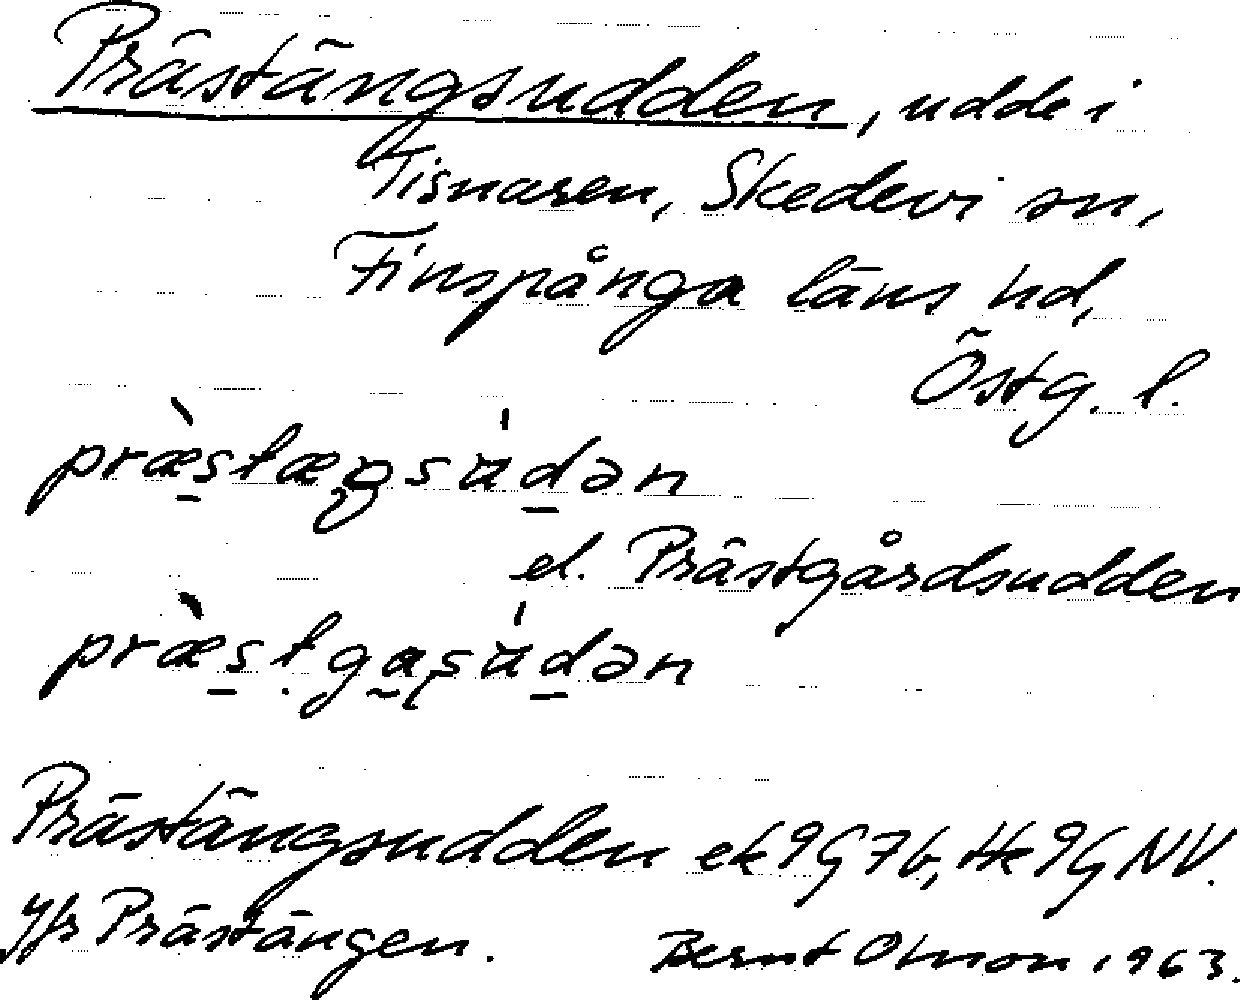 Prästängsudden, udde i
Tisnaren, Skedevi sn,
Finspånga läns hd,
Östg. l.
præ̀stæŋsu̇́dən
el. Prästgårdsudden
præ̀stgasu̇́dən
Prästängsudden ek 9G7b, Hk 9G NV.
Jfr Prästängen. Bernt Olsson 1963.